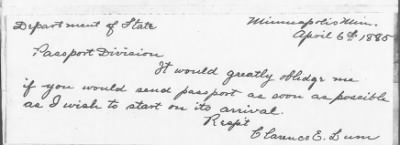 Department of State
Minneapolis Min.
April 6th 1885
Passport Division
It would greatly oblidge me
if you would send passport as soon as possible
as I wish to start on its arrival.
Resp't
Clarence E. Lum